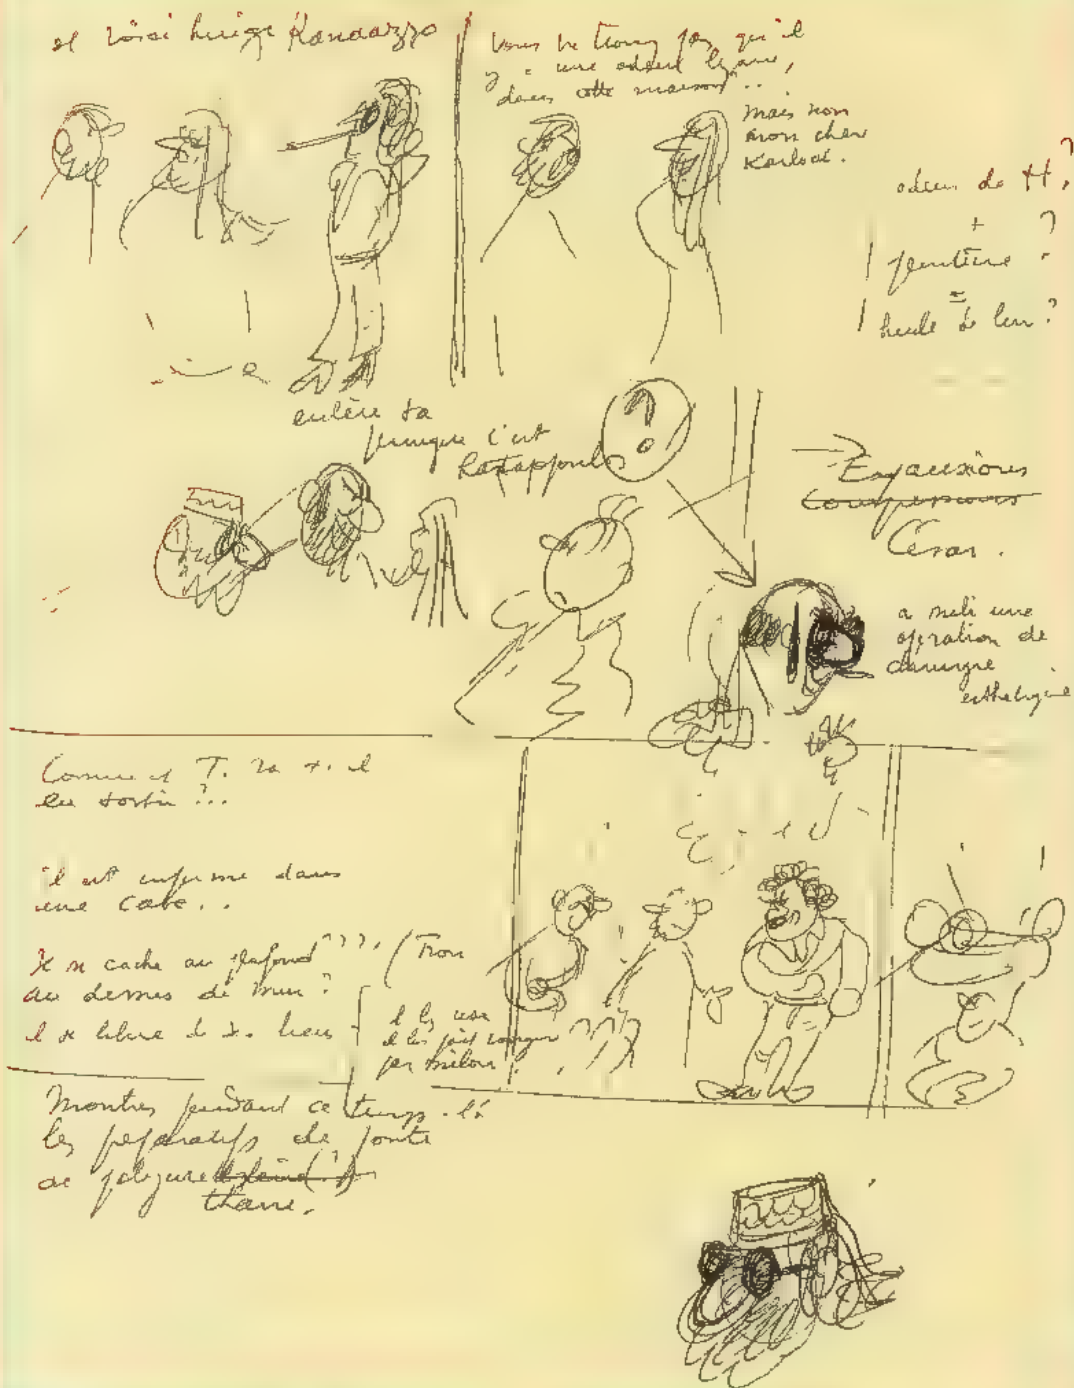 et voici Luigi Randazzo
Vous ne trouvez pas qu'il
y a une odeur
dans cette maison...
mais non
mon cher
odeur de H ?
+ ?
peinture ?
=
huile de lin ?
enlève ta
perruque c'est
Rastappoul
?
Expansions
Compressions
César.
a subi une
opération de
chirurgie
esthétique
Comment T. va-t-il
en sortir ?...
il est enfermé dans
une cave..
se cache au plafond ???
au dessus de mur ?
il se libère de liens
il les use
il les fait ronger
par milou
Montrer pendant ce temps-là
les préparatifs de fonte
de polyuré
thane.